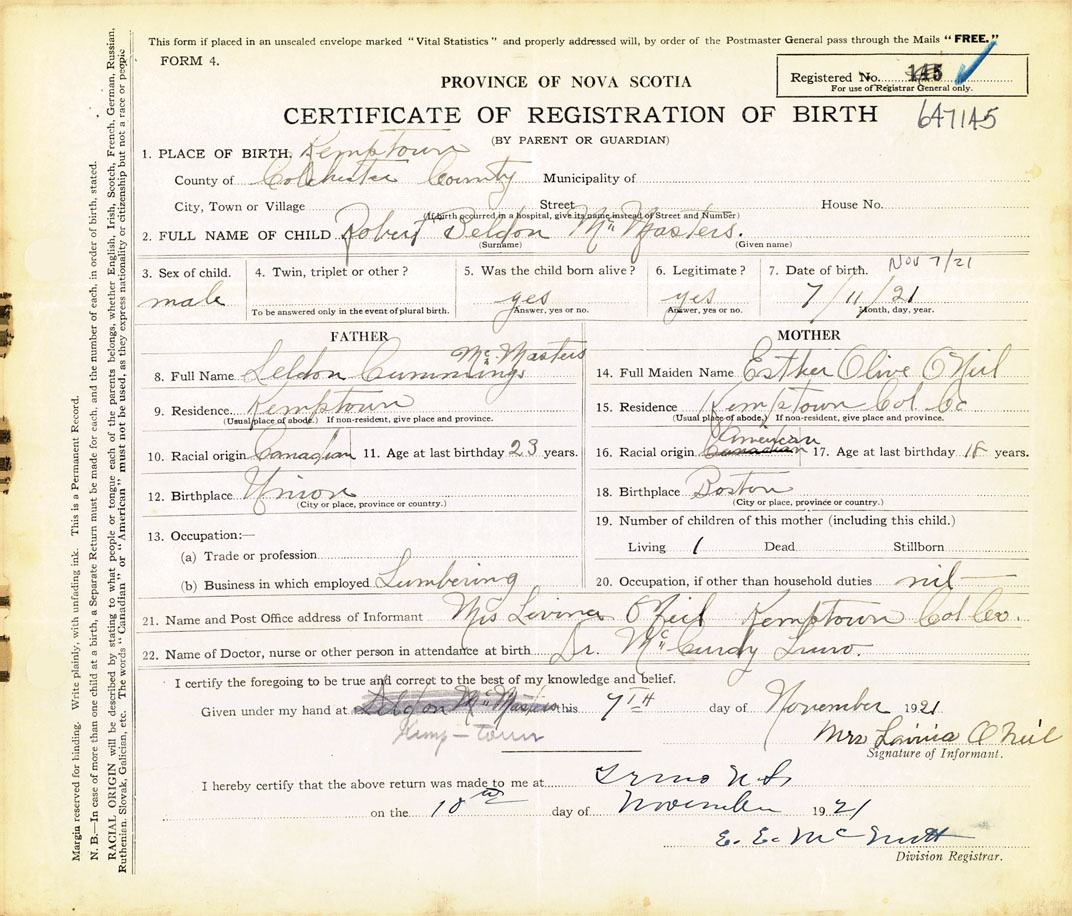 This form if placed in an unsealed envelope marked "Vital Statistics" and properly addressed will, by order of the Postmaster General pass through the Mails "FREE."
FORM 4.
Registered No. 145
For use of Registrar General only.
PROVINCE OF NOVA SCOTIA
CERTIFICATE OF REGISTRATION OF BIRTH 647145
(BY PARENT OR GUARDIAN)
1. PLACE OF BIRTH. Kemptown
County of Colchester County Municipality of
City, Town or Village Street House No.
(If birth occurred in a hospital, give its name instead of Street and Number)
2. FULL NAME OF CHILD Robert Beldon Mc Masters.
(Surname) (Given name)
3. Sex of child. male
4. Twin, triplet or other?
To be answered only in the event of plural birth.
5. Was the child born alive?
yes
Answer, yes or no.
6. Legitimate?
yes
Answer, yes or no.
7. Date of birth. Nov 7/21
7/11/21
Month, day, year.
FATHER
8. Full Name Seldon Cummings Mc Masters
9. Residence Kemptown
(Usual place of abode.) If non-resident, give place and province.
10. Racial origin Canadian 11. Age at last birthday 23 years.
12. Birthplace Union
(City or place, province or country.)
13. Occupation:—
(a) Trade or profession
(b) Business in which employed Lumbering
MOTHER
14. Full Maiden Name Esther Olive O'Neil
15. Residence Kemptown Col. Co
(Usual place of abode.) If non-resident, give place and province.
American
16. Racial origin Canadian 17. Age at last birthday 18 years.
18. Birthplace Boston
(City or place, province or country.)
19. Number of children of this mother (including this child.)
Living 1 Dead Stillborn
20. Occupation, if other than household duties nil
21. Name and Post Office address of Informant Mrs Lavinia O'Neil Kemptown Col Co.
22. Name of Doctor, nurse or other person in attendance at birth Dr. Mc Curdy Truro.
I certify the foregoing to be true and correct to the best of my knowledge and belief.
Given under my hand at Seldon Mc Masters this 7TH day of November 1921
Kemp-town
Mrs Lavinia O'Neil
Signature of Informant.
I hereby certify that the above return was made to me at Truro N.S.
on the 10th day of November 1921
E. E. McNutt
Division Registrar.
Margin reserved for binding. Write plainly, with unfading ink. This is a Permanent Record.
N. B.—In case of more than one child at a birth, a Separate Return must be made for each, and the number of each, in order of birth, stated.
RACIAL ORIGIN will be described by stating to what people or tongue each of the parents belongs, whether English, Irish, Scotch, French, German, Russian,
Ruthenian, Slovak, Galician, etc. The words "Canadian" or "American" must not be used, as they express nationality or citizenship but not a race or people